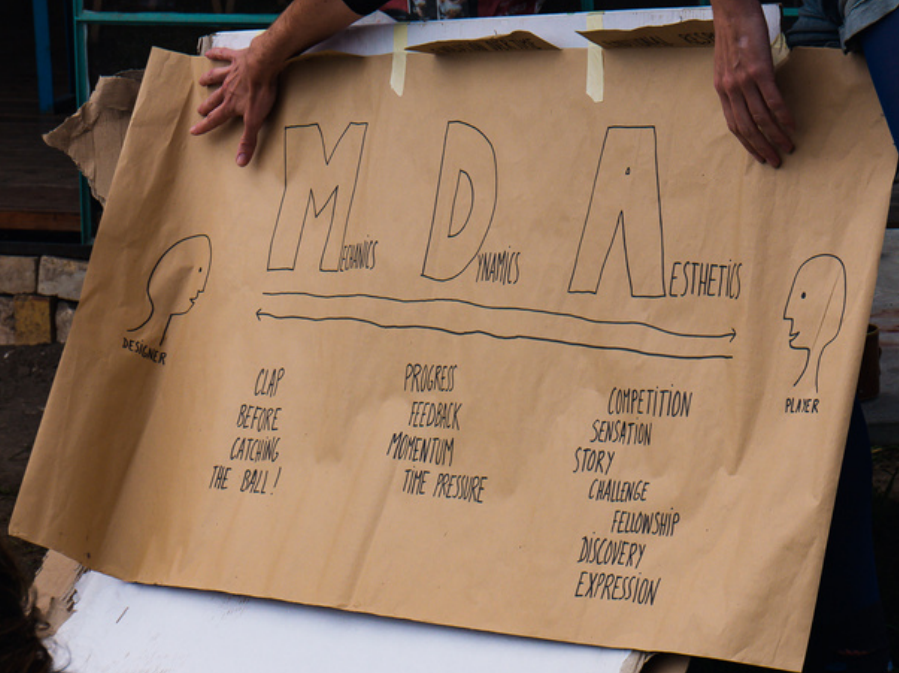 MECHANICS DYNAMICS AESTHETICS
DESIGNER
PLAYER
CLAP
BEFORE
CATCHING
THE BALL!
PROGRESS
FEEDBACK
MOMENTUM
TIME PRESSURE
COMPETITION
SENSATION
STORY
CHALLENGE
FELLOWSHIP
DISCOVERY
EXPRESSION